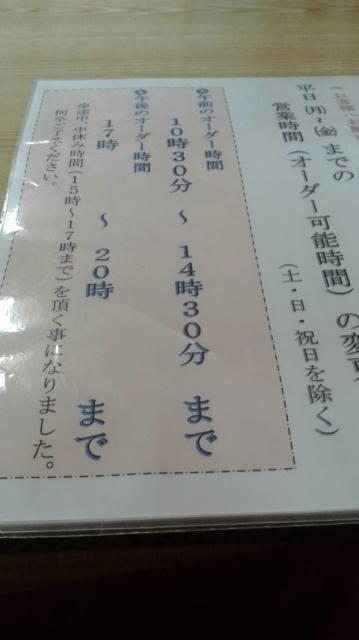 平日(月)～(金)までの
営業時間(オーダー可能時間)の変
(土・日・祝日を除く)
午前のオーダー時間
10時30分 ～ 14時30分 まで
午後のオーダー時間
17時 ～ 20時 まで
※途中、中休み時間(15時～17時まで)を頂く事になりました。
何卒ご了承ください。